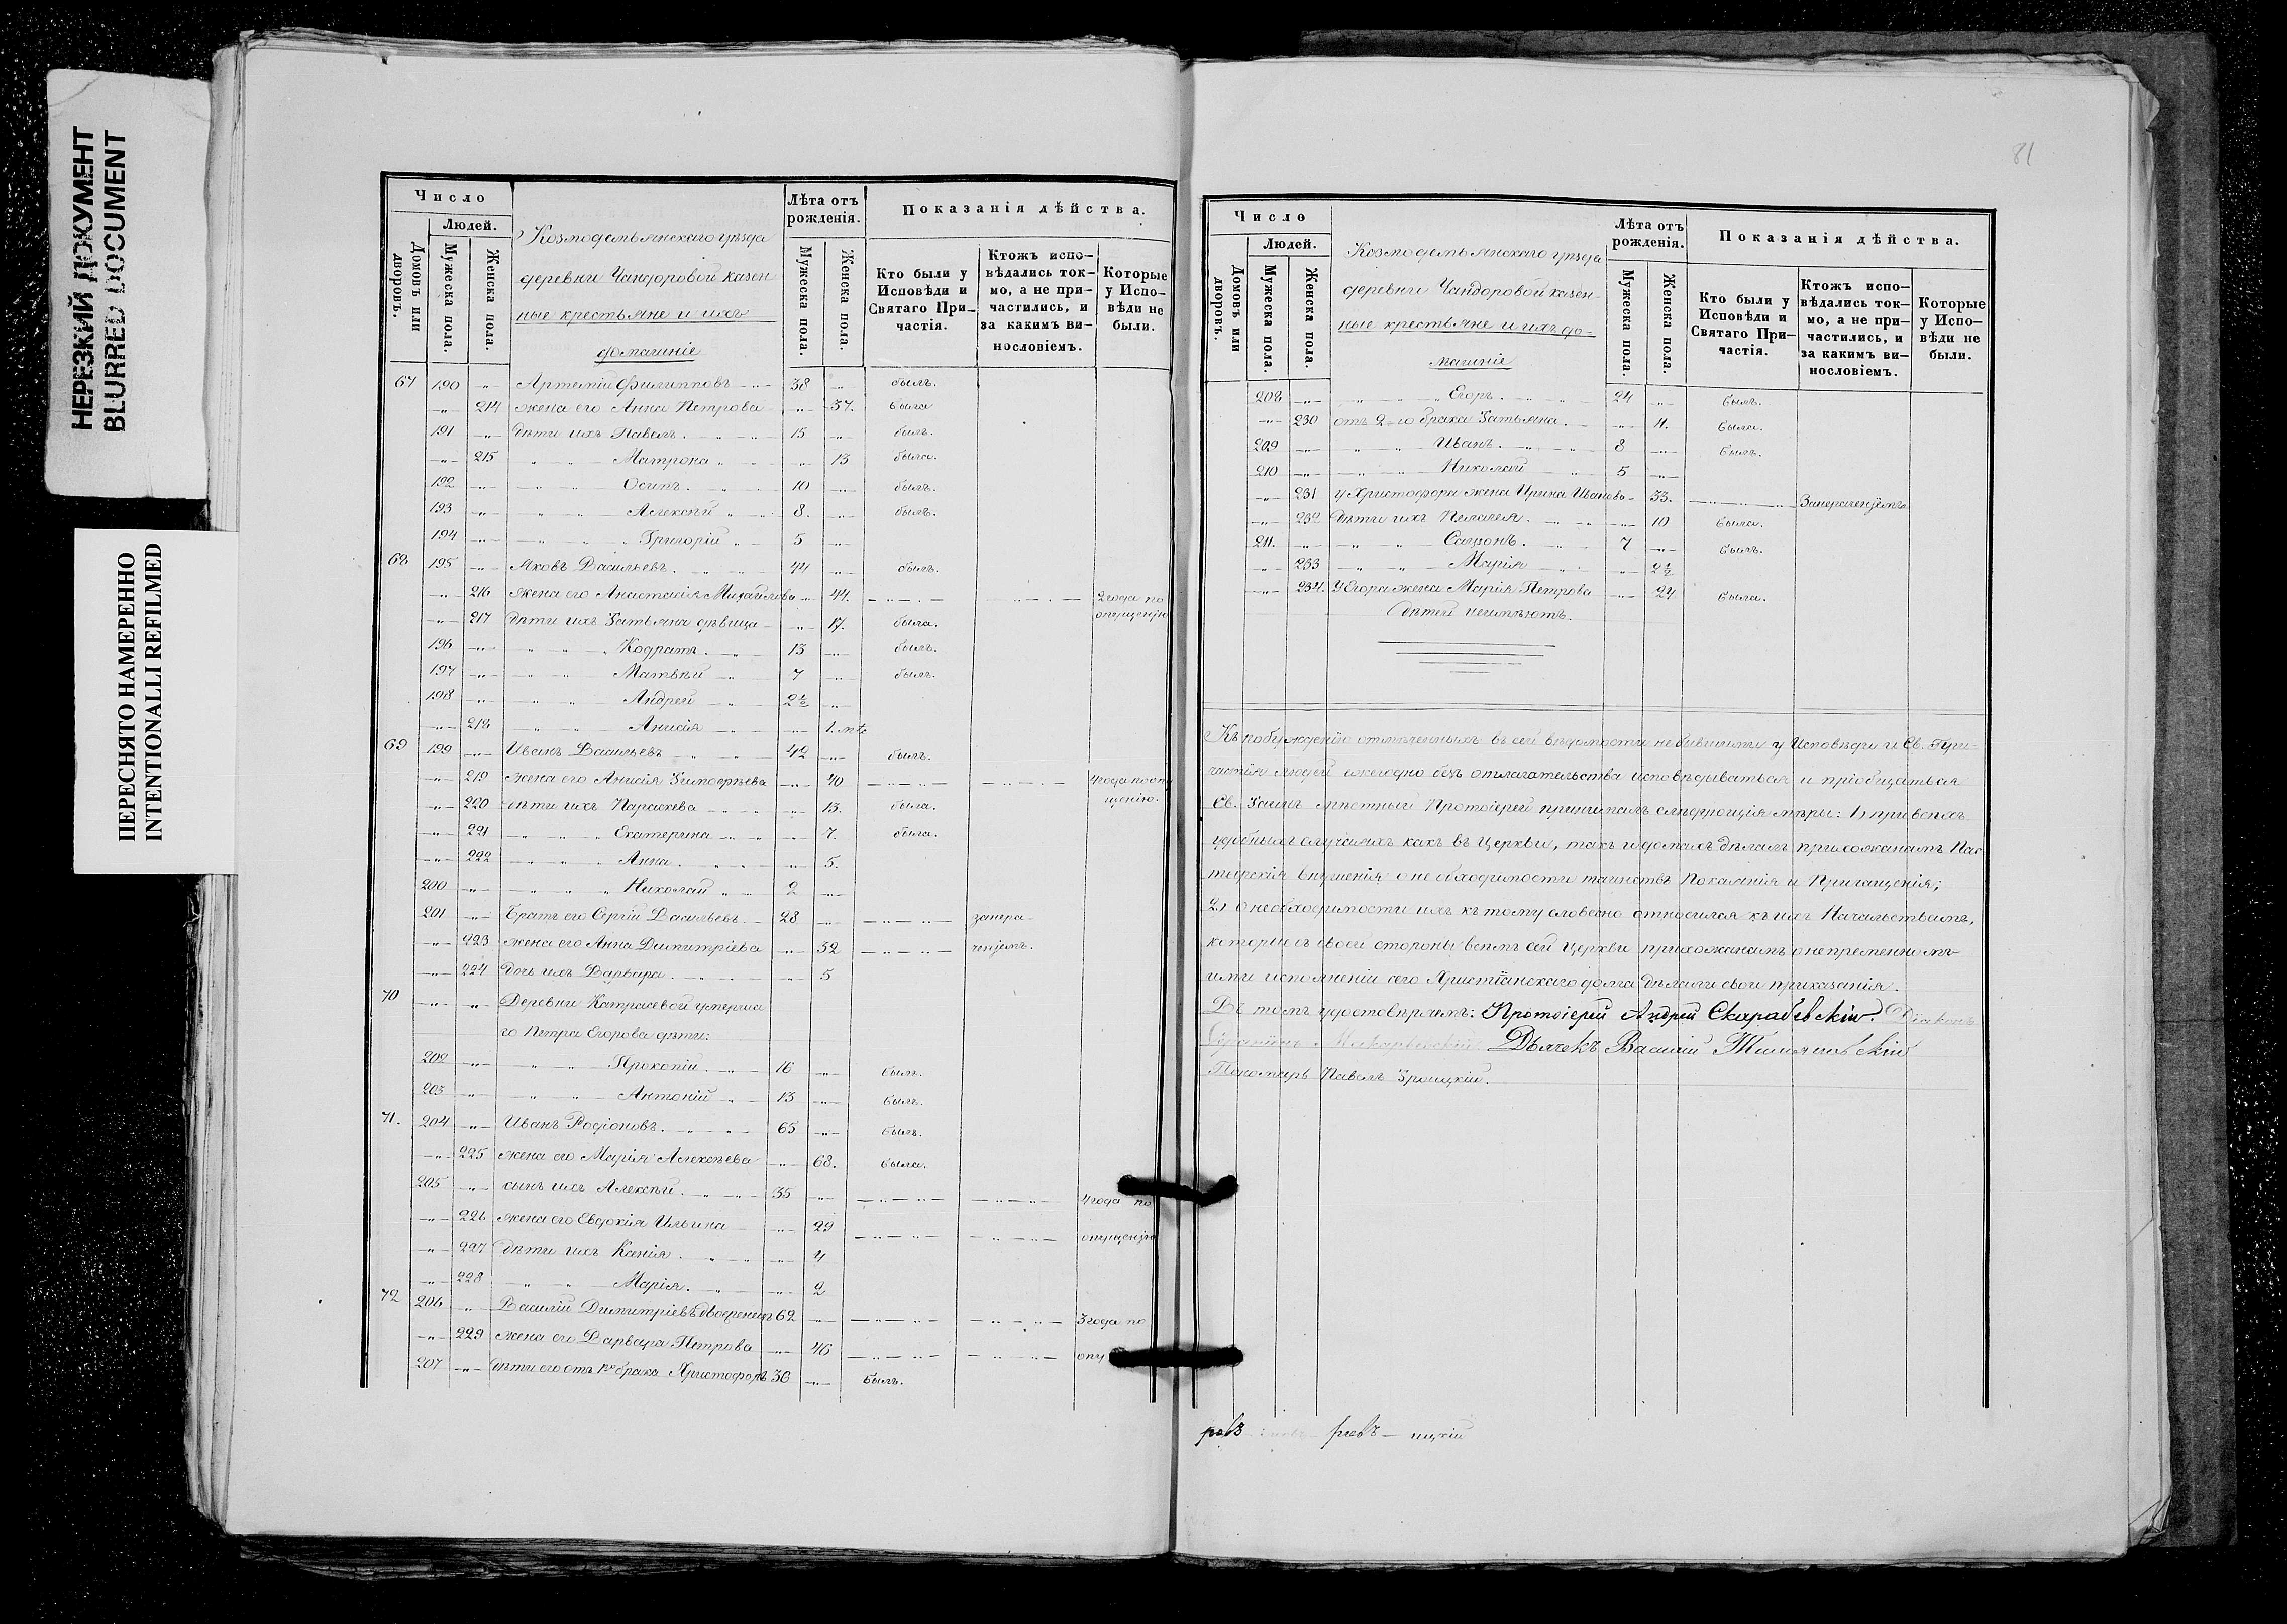 НЕРЕЗКИЙ ДОКУМЕНТ
BLURRED DOCUMENT
ПЕРЕСНЯТО НАМЕРЕННО
INTENTIONALLI REFILMED
Число
Людей.
Домовъ или дворовъ.
Мужеска пола.
Женска пола.
Козмодемьянскаго уѣзда
деревни Чандоровой казен-
ные крестьяне и ихъ
домашніе
Лѣта отъ рожденія.
Мужеска пола.
Женска пола.
Показанія дѣйства.
Кто были у Исповѣди и Святаго При-частія.
Ктожъ испо-вѣдались ток-мо, а не при-частились, и за какимъ ви-нословіемъ.
Которые у Испо-вѣди не были.
67 190 -„- Артемій Филипповъ 38 -„- былъ.
-„- 214 жена его Анна Петрова -„- 37. была
191 -„- дѣти ихъ Павелъ. 15 -„- былъ.
-„- 215 Матрона -„- 13 была.
192 -„- Осипъ. 10 -„- былъ.
193 -„- Алексѣй 8. -„- былъ.
194 -„- Григорій 5 -„-
68 195 -„- Яковъ Васильевъ. 44 -„- былъ.
-„- 216 жена его Анастасія Михайлова -„- 44. 2 года по
опущенію
-„- 217 дѣти ихъ Татьяна дѣвица -„- 17. была.
196 -„- Кодратъ. 13 -„- былъ.
197 -„- Матвѣй 7 -„- былъ.
198 -„- Андрей 2½ -„-
-„- 218 Анисія -„- 1.
69 199 -„- Иванъ Васильевъ 42 -„- былъ.
-„- 219 жена его Анисія Тимофѣева -„- 40 4 года по опу
щенію.
-„- 220 дѣти ихъ Параскева -„- 13. была.
-„- 221 Екатерина -„- 7. была.
-„- 222 Анна. -„- 5.
200 -„- Николай 2 -„-
201 -„- Братъ его Сергій Васильевъ. 28 -„- запра-
-„- 223 жена его Анна Димитріева -„- 32
-„- 224 дочь ихъ Варвара. -„- 5
70 -„- -„- Деревни Катрасевой умерша
го Петра Егорова дѣти:
202 -„- Прокопій. 16 -„- былъ.
203 -„- Антоній 13 -„- былъ.
71. 204 -„- Иванъ Родіоновъ. 65 -„- былъ.
-„- 225 жена его Марія Алексѣева -„- 68. была.
205 -„- сынъ ихъ Алексѣй. 35 -„- 4 года по
-„- 226 жена его Евдокія Ильина -„- 29 опущенію
-„- 227 дѣти ихъ Ксенія. -„- 4
-„- 228 Марія. -„- 2
72 206 -„- Василій Димитріевъ двоеженецъ 62 -„- 3 года по
-„- 229 жена его Варвара Петрова -„- 46 опу
207 -„- дѣти его отъ 1го брака Христофоръ 36 -„- былъ.
81
Число
Людей.
Домовъ или дворовъ.
Мужеска пола.
Женска пола.
Козмодемьянскаго уѣзда
деревни Чандоровой казен-
ные крестьяне и ихъ до-
машніе
Лѣта отъ рожденія.
Мужеска пола.
Женска пола.
Показанія дѣйства.
Кто были у Исповѣди и Святаго При-частія.
Ктожъ испо-вѣдались ток-мо, а не при-частились, и за какимъ ви-нословіемъ.
Которые у Испо-вѣди не были.
208 -„- Егоръ. 24 -„- былъ.
-„- 230 отъ 2-го брака Татьяна. -„- 11. была.
209 -„- Иванъ. 8 -„- былъ.
210 -„- Николай 5 -„-
-„- 231 у Христофора жена Ирина Иванова -„- 33.
-„- 232 дѣти ихъ Пелагея. -„- 10 была.
211. -„- Сампсонъ. 7 -„- былъ.
-„- 233 Марія -„- 2½
-„- 234. У Егора жена Марія Петрова -„- 24 была.
дѣтей неимѣютъ.
Къ побужденію отмѣченныхъ въ сей вѣдомости небывшими у Исповѣди и Св. При-
частія людей ежегодно безъ отлагательства исповѣдываться и пріобщаться
Св. Таинъ мѣстный Протоіерей принималъ слѣдующія мѣры: 1) при всѣхъ
удобныхъ случаяхъ какъ въ Церкви, такъ и домахъ дѣлалъ прихожанамъ Пас-
тырскія внушенія о необходимости таинствъ Покаянія и Причащенія;
2) о необходимости ихъ къ тому словесно относился къ ихъ Начальствамъ,
которые съ своей стороны всѣмъ сей Церкви прихожанамъ о непременномъ
ими исполненіи сего Христіанскаго долга дѣлали свои приказанія.
Въ томъ удостовѣряемъ: Протоіерей Андрей Скарабевскій. Діаконъ
Дьячекъ Василій
Пономарь Павелъ Троицкій.
ровъ ревъ — ицкій